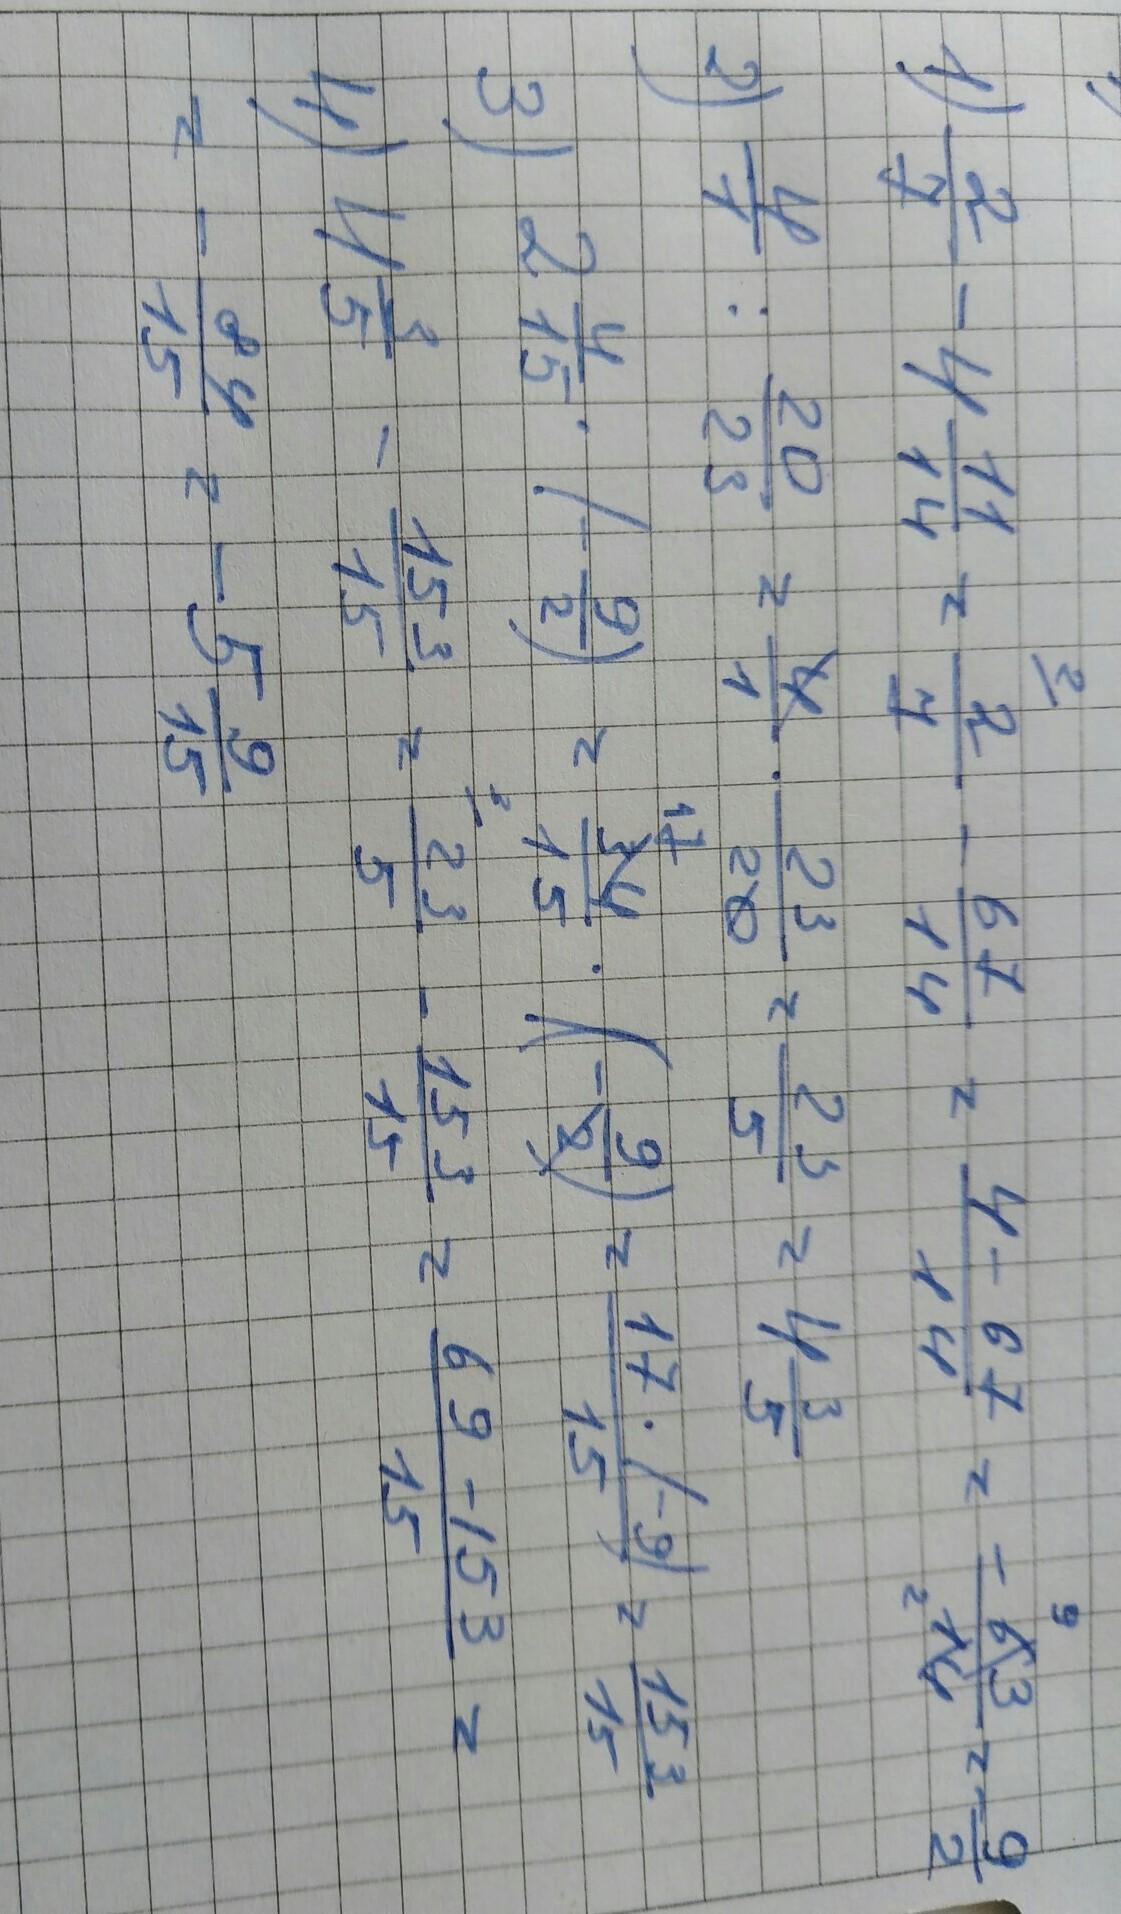 1) 2/7 - 4 11/14 = 2/7 - 67/14 = 4-67/14 = -63/14 = -9/2
2) 4/1 : 20/23 = 4/1 · 23/20 = 23/5 = 4 3/5
3) 2 4/15 · (-9/2) = 34/15 · (-9/2) = 17·(-9)/15 = 153/15
4) 4 3/5 - 153/15 = 23/5 - 153/15 = 69-153/15 =
= -84/15 = -5 9/15